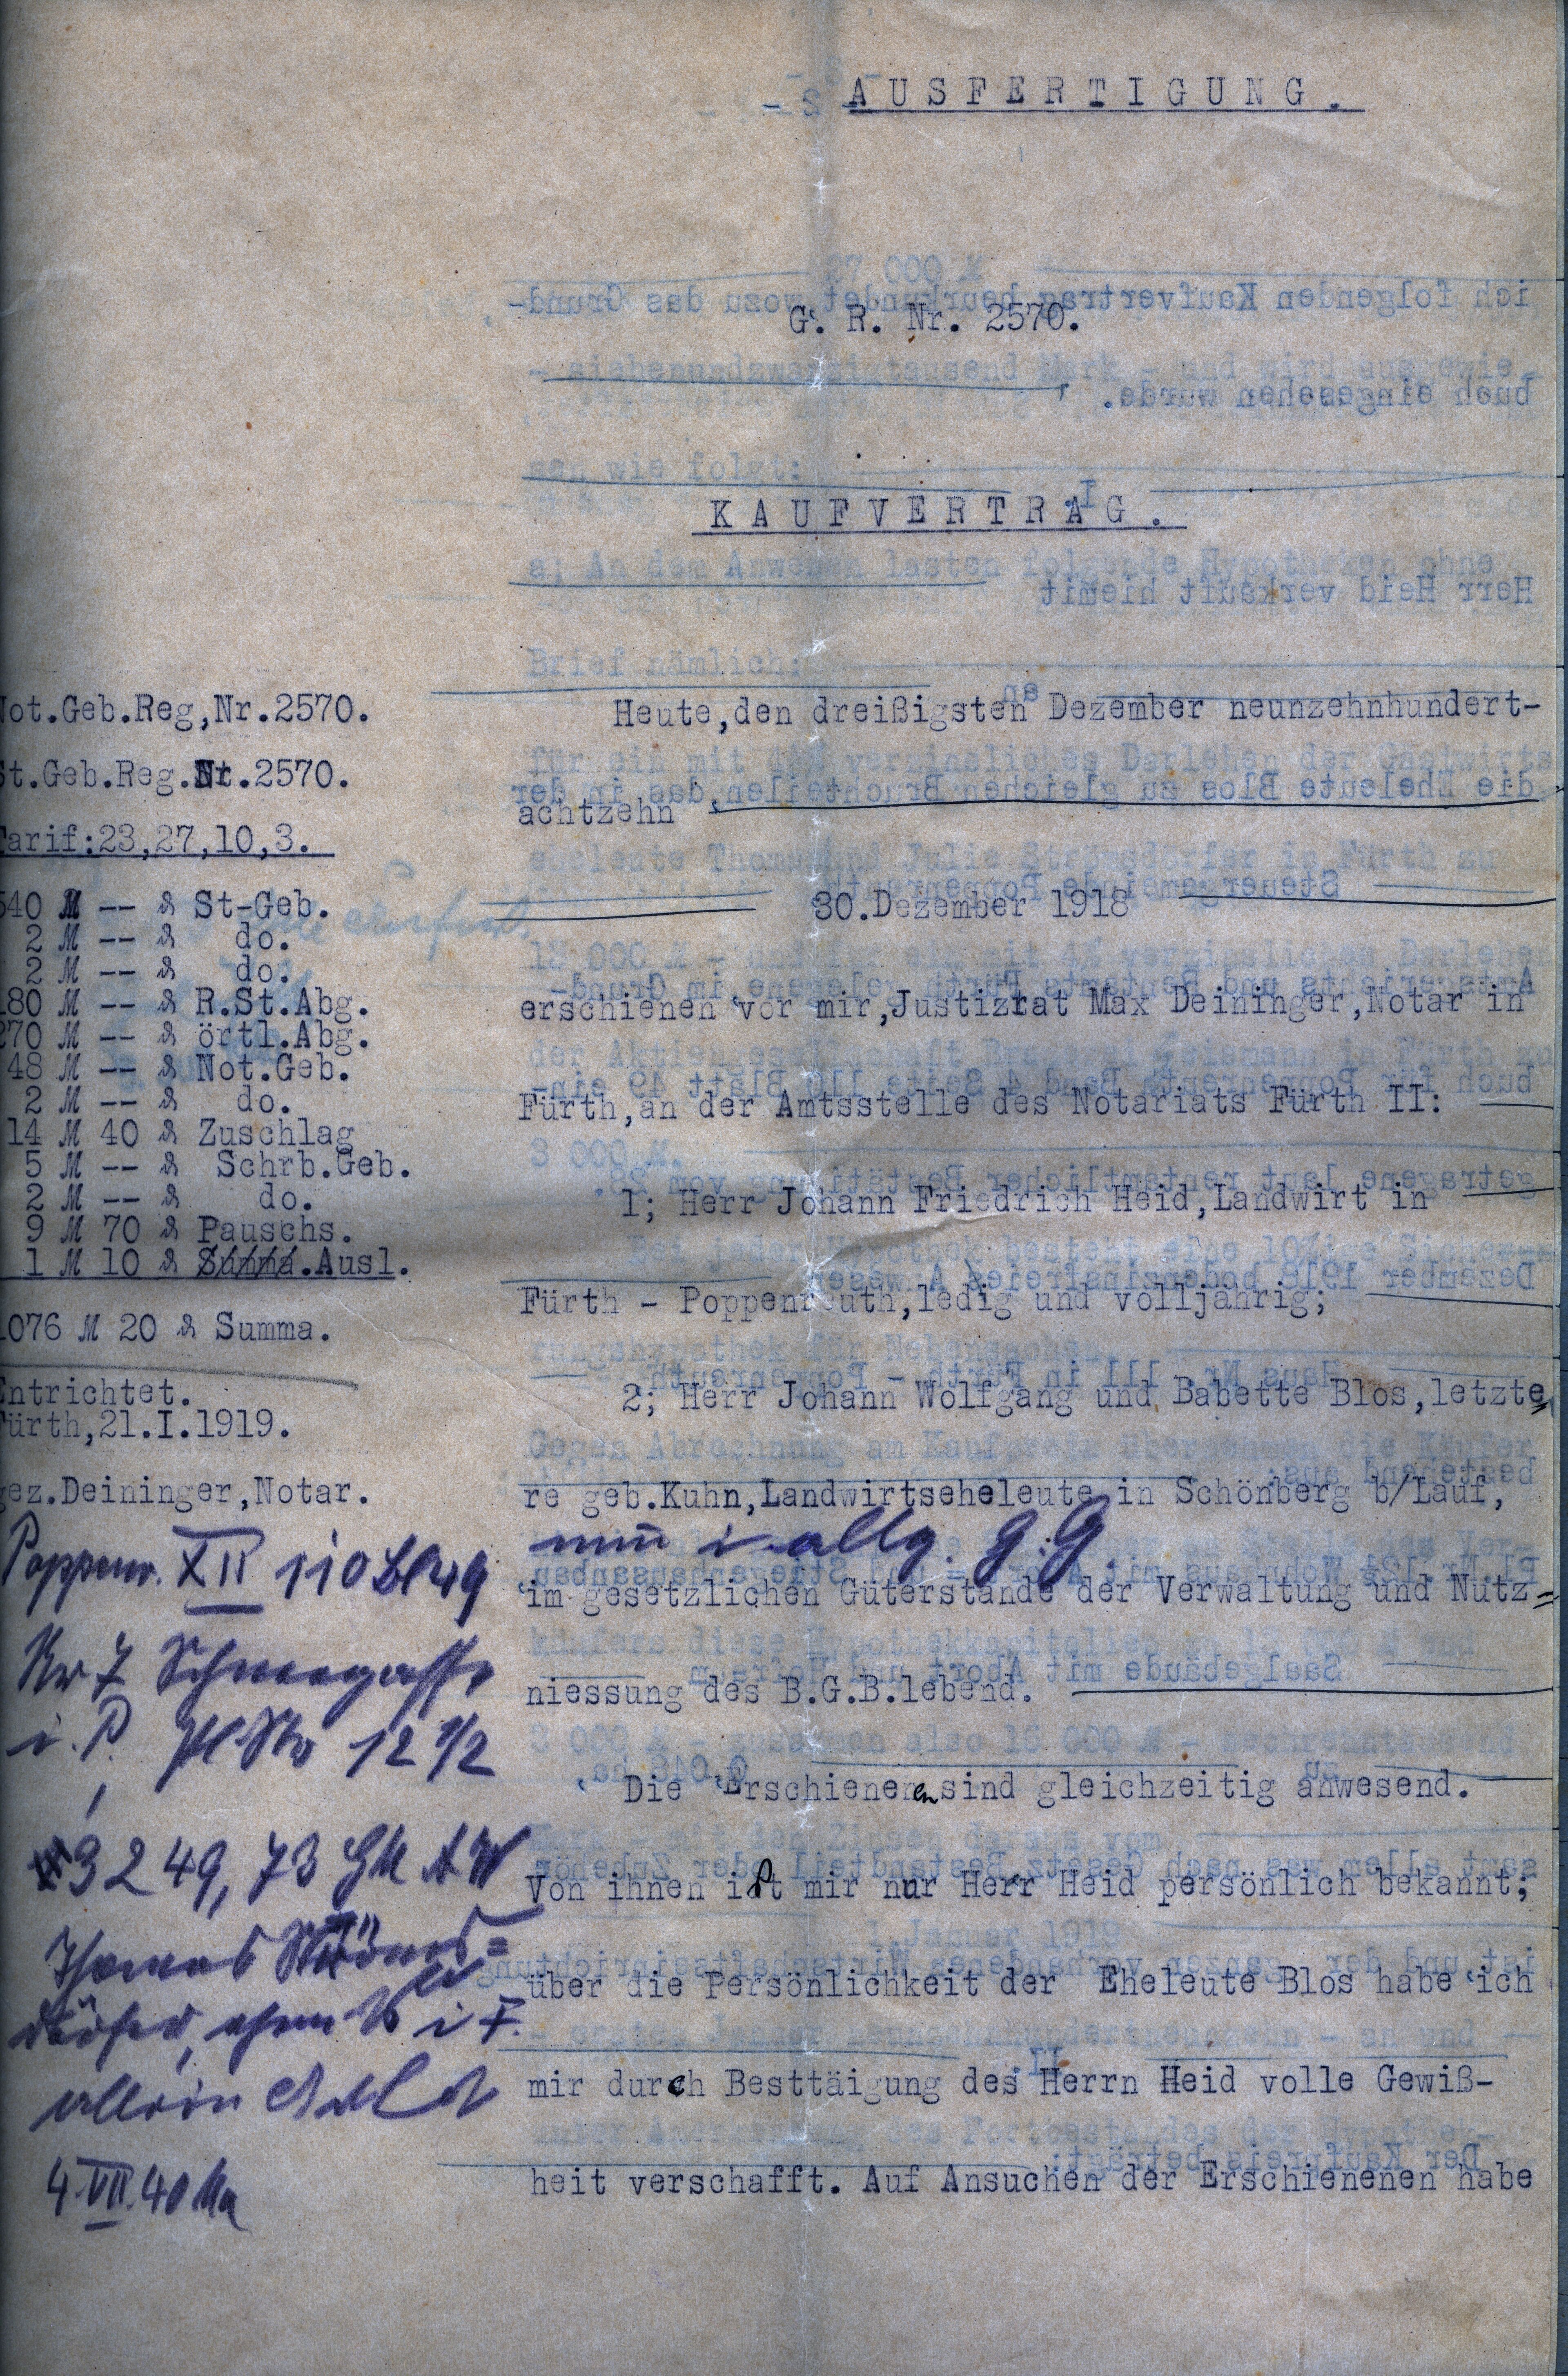 AUSFERTIGUNG.
G. R. Nr. 2570.
KAUFVERTRAG.
Not.Geb.Reg,Nr.2570.
St.Geb.Reg.Nr.2570.
Tarif:23,27,10,3.
540 M -- ₰ St-Geb.
2 M -- ₰ do.
2 M -- ₰ do.
180 M -- ₰ R.St.Abg.
270 M -- ₰ örtl.Abg.
48 M -- ₰ Not.Geb.
2 M -- ₰ do.
14 M 40 ₰ Zuschlag
5 M -- ₰ Schrb.Geb.
2 M -- ₰ do.
9 M 70 ₰ Pauschs.
1 M 10 ₰ Summa.Ausl.
1076 M 20 ₰ Summa.
Entrichtet.
Fürth,21.I.1919.
gez.Deininger,Notar.
Poppenr. XII 110 Bl 49
Nr 7
i. P. Pl Nr 12 1/2
3249,73 GM
Thomas Ströms=
dörfer, i F.
allein
4.VII.40
Heute,den dreißigsten Dezember neunzehnhundert-
achtzehn
30.Dezember 1918
erschienen vor mir,Justizrat Max Deininger,Notar in
Fürth,an der Amtsstelle des Notariats Fürth II:
1; Herr Johann Friedrich Heid,Landwirt in
Fürth - Poppenreuth,ledig und volljährig;
2; Herr Johann Wolfgang und Babette Blos,letzte=
re geb.Kuhn,Landwirtseheleute in Schönberg b/Lauf,
nun i. allg. G.G.
im gesetzlichen Güterstande der Verwaltung und Nutz=
niessung des B.G.B.lebend.
Die Erschienenen sind gleichzeitig anwesend.
Von ihnen ist mir nur Herr Heid persönlich bekannt;
über die Persönlichkeit der Eheleute Blos habe ich
mir durch Besttäigung des Herrn Heid volle Gewiß-
heit verschafft. Auf Ansuchen der Erschienenen habe